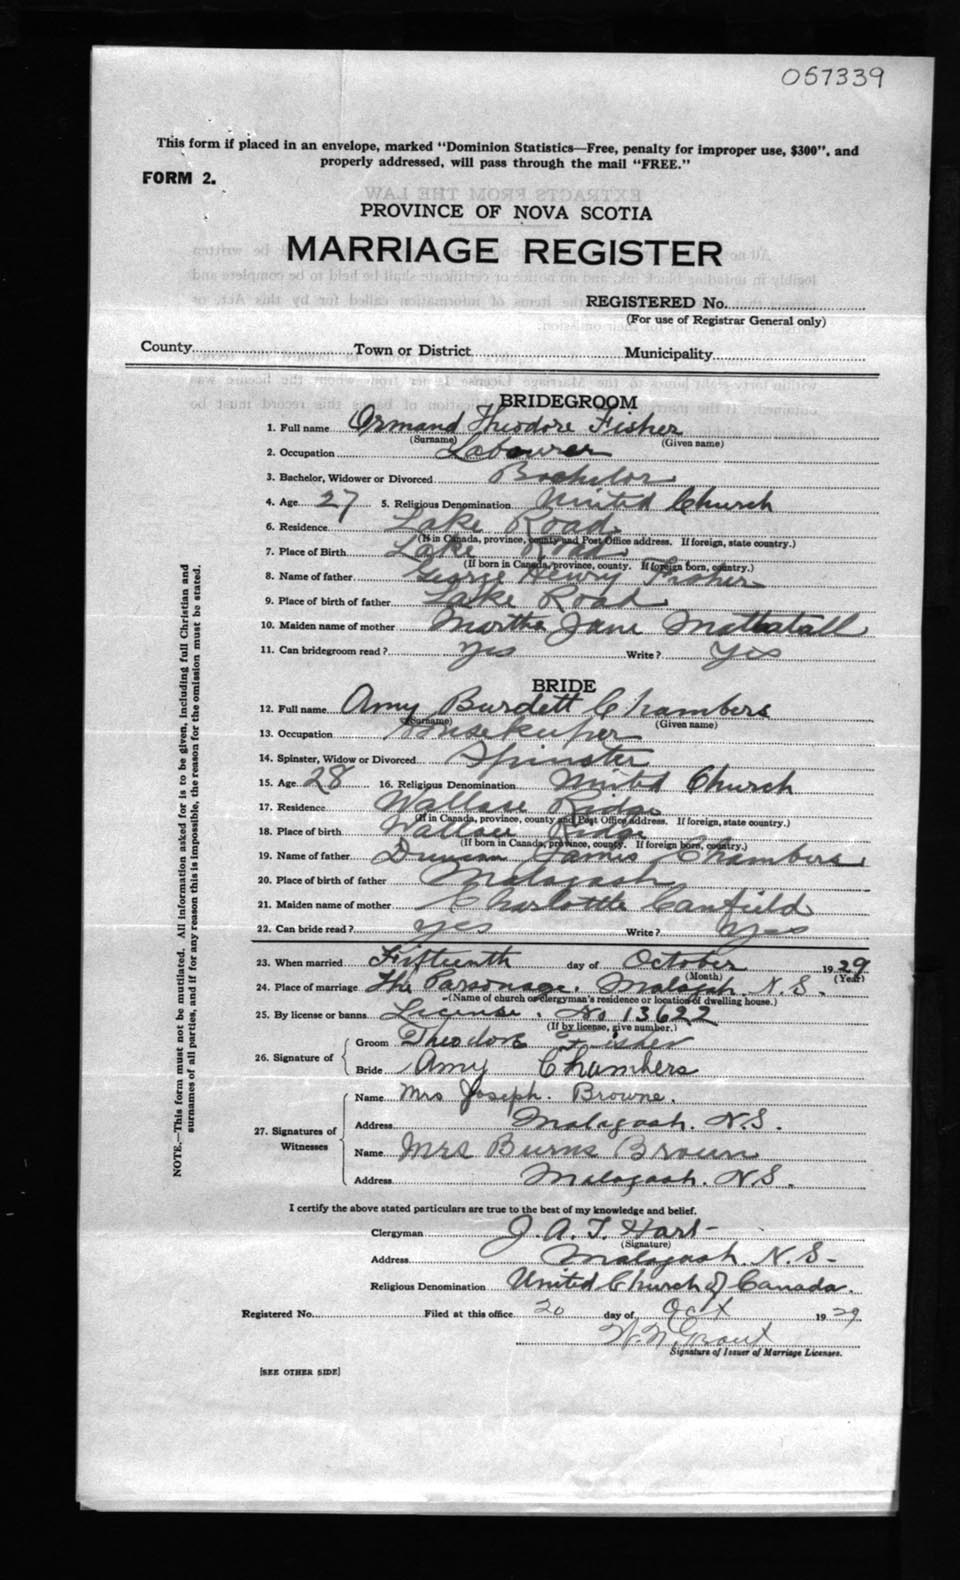 057339
This form if placed in an envelope, marked "Dominion Statistics—Free, penalty for improper use, $300", and
properly addressed, will pass through the mail "FREE."
FORM 2.
PROVINCE OF NOVA SCOTIA
MARRIAGE REGISTER
REGISTERED No.
(For use of Registrar General only)
County Town or District Municipality
BRIDEGROOM
1. Full name Ormand Theodore Fisher
(Surname) (Given name)
2. Occupation Labourer
3. Bachelor, Widower or Divorced Bachelor
4. Age 27 5. Religious Denomination United Church
6. Residence Lake Road
(If in Canada, province, county and Post Office address. If foreign, state country.)
7. Place of Birth Lake Road
(If born in Canada, province, county. If foreign born, country.)
8. Name of father George Henry Fisher
9. Place of birth of father Lake Road
10. Maiden name of mother Martha Jane Mattatall
11. Can bridegroom read? Yes Write? Yes
BRIDE
12. Full name Amy Burdett Chambers
(Surname) (Given name)
13. Occupation Housekeeper
14. Spinster, Widow or Divorced Spinster
15. Age 28 16. Religious Denomination United Church
17. Residence Wallace Ridge
(If in Canada, province, county and Post Office address. If foreign, state country.)
18. Place of birth Wallace Ridge
(If born in Canada, province, county. If foreign born, country.)
19. Name of father Duncan James Chambers
20. Place of birth of father Malagash
21. Maiden name of mother Charlotte Canfield
22. Can bride read? Yes Write? Yes
23. When married Fifteenth day of October 1929
(Month) (Year)
24. Place of marriage The Parsonage. Malagash N.S.
(Name of church or clergyman's residence or location of dwelling house.)
25. By license or banns License. No 13622
(If by license, give number.)
26. Signature of
Groom Theodore Fisher
Bride Amy Chambers
27. Signatures of Witnesses
Name Mrs Joseph. Browne.
Address Malagash. N.S.
Name Mrs Burns Brown
Address Malagash. N.S.
I certify the above stated particulars are true to the best of my knowledge and belief.
Clergyman J. A. T. Hart
(Signature)
Address Malagash. N.S.
Religious Denomination United Church of Canada.
Registered No. Filed at this office 20 day of Oct 1929
Grant
Signature of Issuer of Marriage Licenses.
[SEE OTHER SIDE]
NOTE.—This form must not be mutilated. All information asked for is to be given, including full Christian and
surnames of all parties, and if for any reason this is impossible, the reason for the omission must be stated.